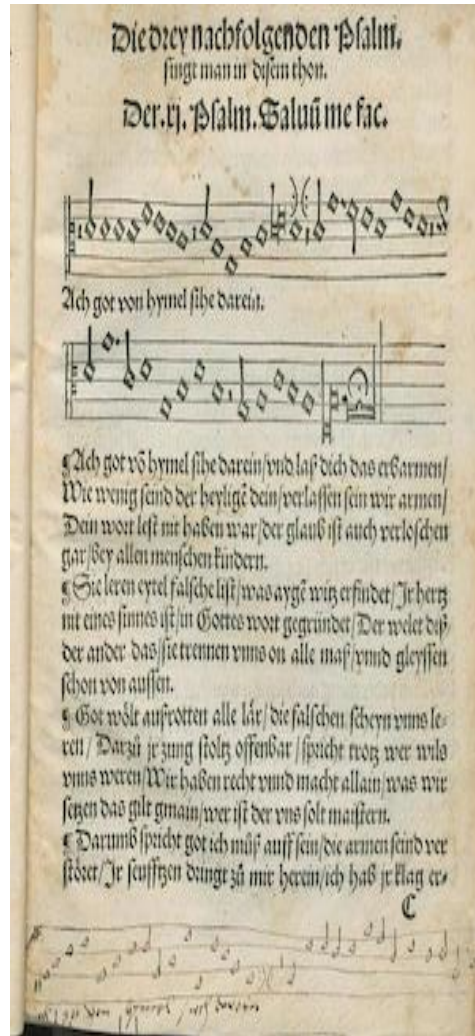 Die drey nachfolgenden Psalm.
singt man in disem thon.
Der .xj. Psalm. Saluū me fac.
Ach got von hymel sihe darein.
¶ Ach got vō hymel sihe darein/vnd laß dich das erbarmen/
Wie wenig seind der heyligē dein/verlassen sein wir armen/
Dein wort lest nit haben war/der glaub ist auch verloschen
gar/bey allen menschen kindern.
¶ Sie leren eytel falsche list/was aygē witz erfindet/Jr hertz
nit eines sinnes ist/in Gottes wort gegründet/Der welet diß
der ander das/sie trennen vnns on alle maß/vnnd gleyssen
schon von aussen.
¶ Got wölt außrotten alle lär/die falschen scheyn vnns le-
ren/Darzů jr zung stoltz offenbar/spricht trotz wer wils
vnns weren/Wir haben recht vnnd macht allain/was wir
setzen das gilt gmain/wer ist der vns solt maistern.
¶ Darumb spricht got ich můß auff sein/die armen seind ver
störet/Jr seufftzen dringt zů mir herein/ich hab jr klag er-
C